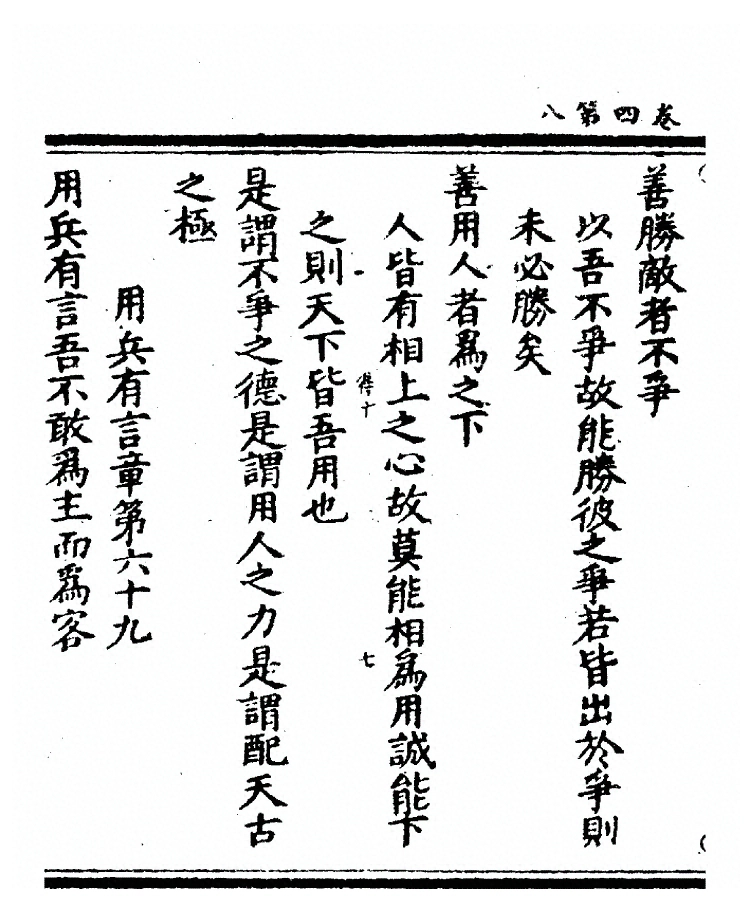 卷四第八
善勝敵者不爭
以吾不爭故能勝彼之爭若皆出於爭則
未必勝矣
善用人者爲之下
人皆有相上之心故莫能相爲用誠能下
得十
七
之則天下皆吾用也
是謂不爭之德是謂用人之力是謂配天古
之極
用兵有言章第六十九
用兵有言吾不敢爲主而爲客